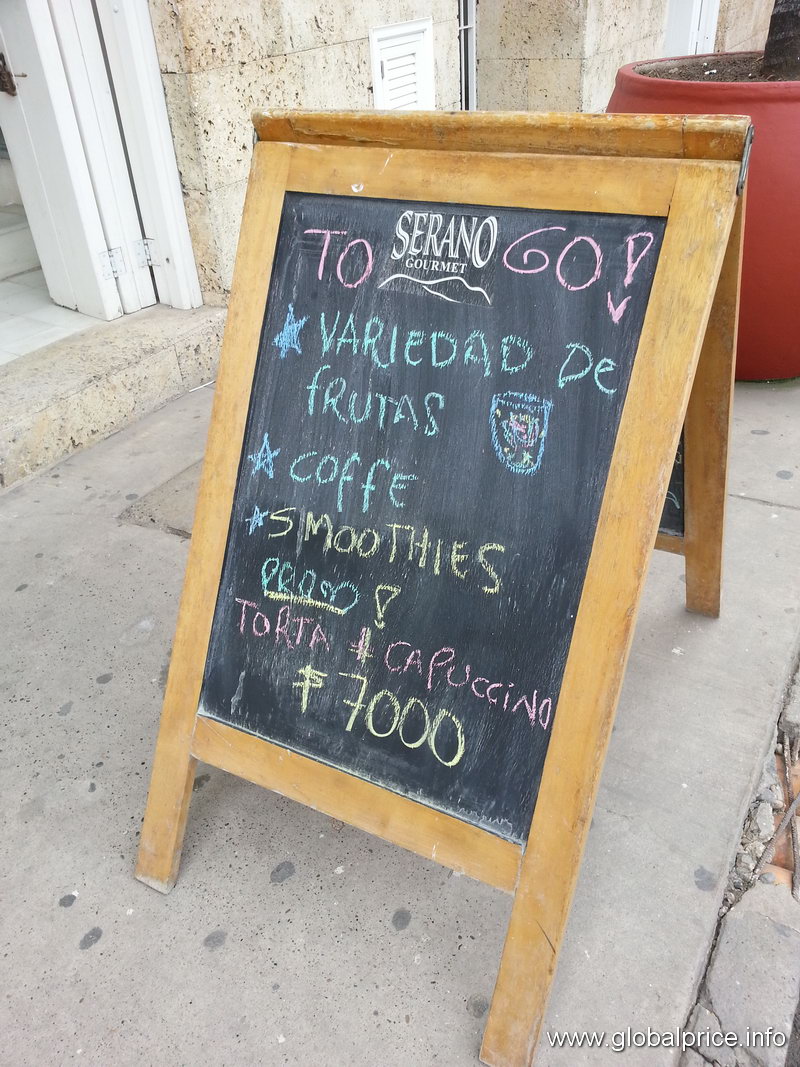 TO SERANO GO!
GOURMET
VARIEDAD DE
FRUTAS
COFFE
SMOOTHIES
PROMO!
TORTA + CAPUCCINO
$7000
www.globalprice.info